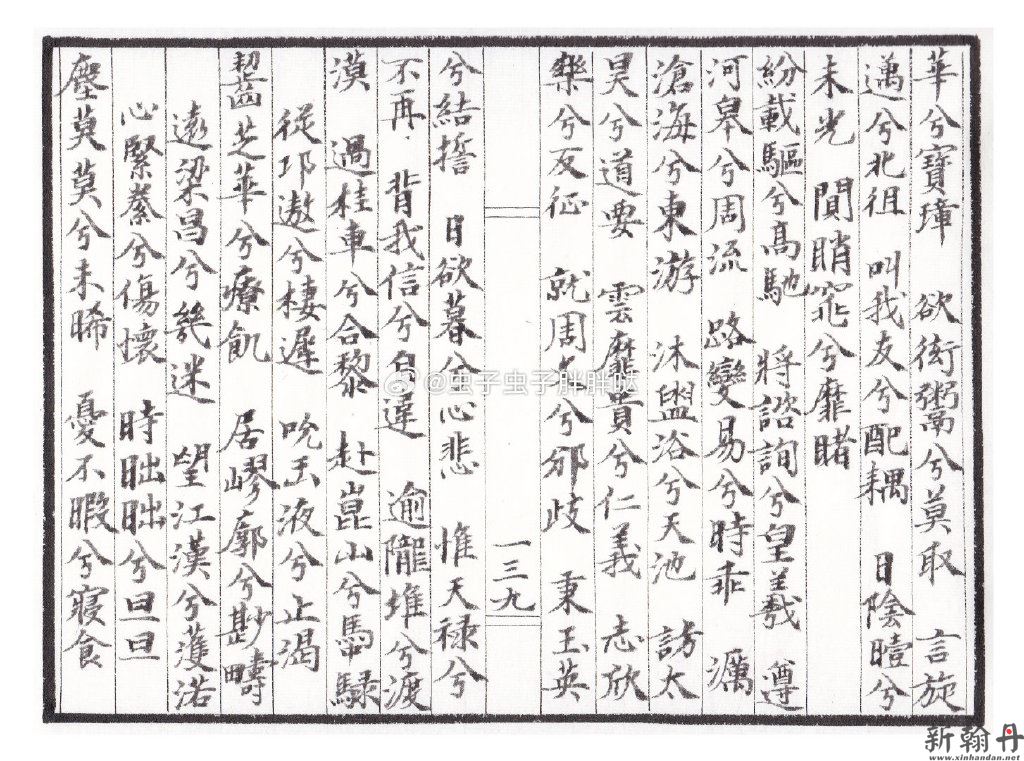 華兮寶璋　欲衒鬻兮莫取　言旋
邁兮北徂　叫我友兮配耦　日陰曀兮
未光　閴睄窕兮靡睹
紛載驅兮高馳　將諮詢兮皇羲　遵
河皋兮周流　路變易兮時乖　濿
滄海兮東游　沐盥浴兮天池　訪太
昊兮道要　雲靡貴兮仁義　志欣
樂兮反征　就周文兮邠歧　秉玉英
兮結誓　日欲暮兮心悲　惟天祿兮
不再　背我信兮自違　逾隴堆兮渡
漠　過桂車兮合黎　赴崑山兮馬騄
從邛遨兮棲遲　吮玉液兮止渴
齧芝華兮療飢　居嵺廓兮尠疇
遠梁昌兮幾迷　望江漢兮濩渃
心緊絭兮傷懷　時昢昢兮旦旦
塵莫莫兮未晞　憂不暇兮寢食
一三九
@虫子虫子胖胖哒
新翰丹
www.xinhandan.net